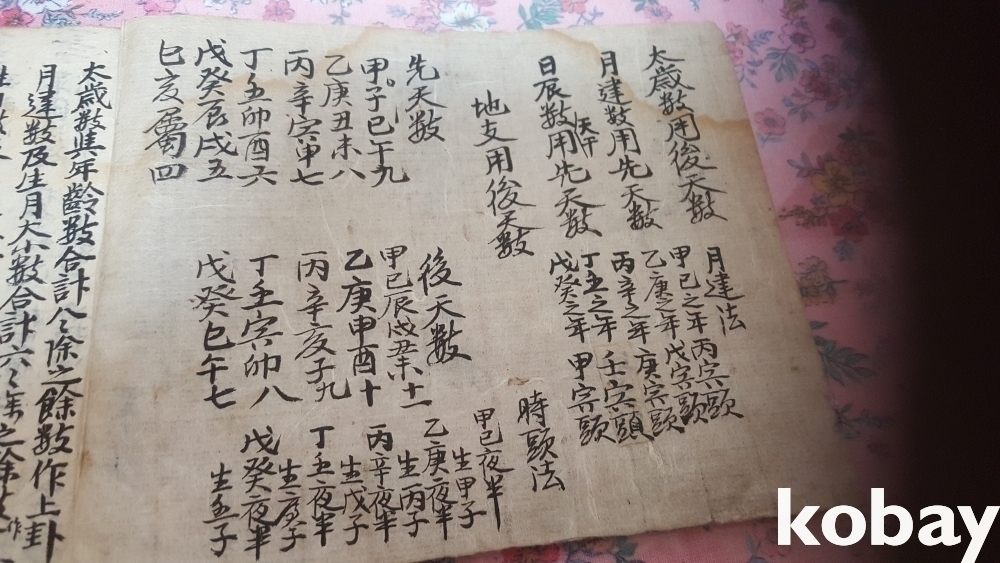 太歲数用後天数
月建数用先天数
日辰数天干用先天数
地支用後天数
月建法
甲己之年丙寅頭
乙庚之年戊寅頭
丙辛之年庚寅頭
丁壬之年壬寅頭
戊癸之年甲寅頭
時頭法
甲己夜半生甲子
乙庚夜半生丙子
丙辛夜半生戊子
丁壬夜半生庚子
戊癸夜半生壬子
先天数
甲己子午九
乙庚丑未八
丙辛寅申七
丁壬卯酉六
戊癸辰戌五
巳亥屬四
後天数
甲己辰戌丑未十一
乙庚申酉十
丙辛亥子九
丁壬寅卯八
戊癸巳午七
太歲数與年齡数合計八八除之餘数作上卦
月建数及生月大小数合計六六
kobay